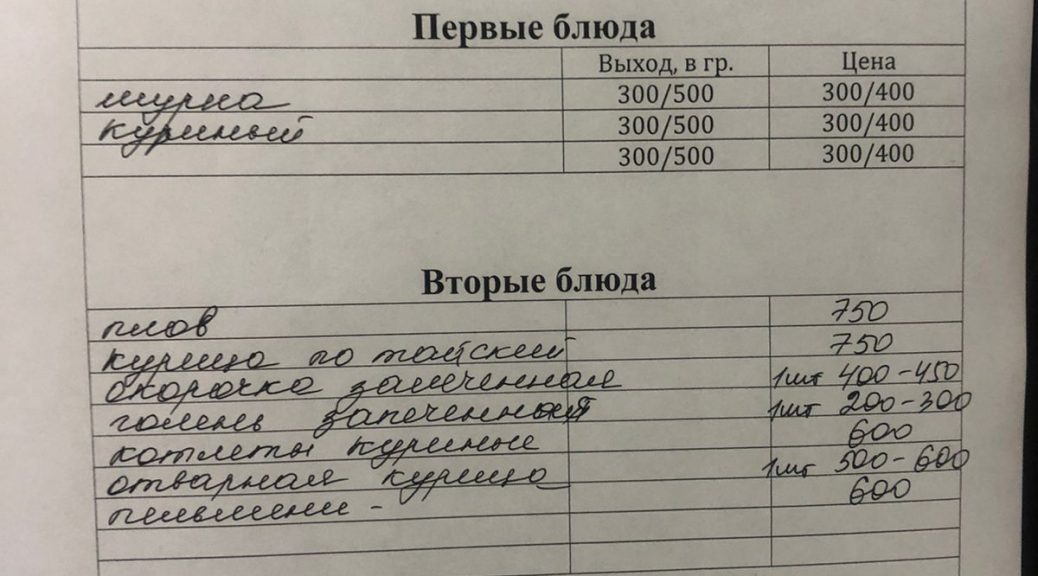 Первые блюда
Выход, в гр. Цена
шурпа 300/500 300/400
куриный 300/500 300/400
300/500 300/400
Вторые блюда
плов 750
курица по тайский 750
окорочка запеченная 1шт 400-450
голень запеченный 1шт 200-300
котлеты куриные 600
отварная курица 1шт 500-600
пельмени - 600